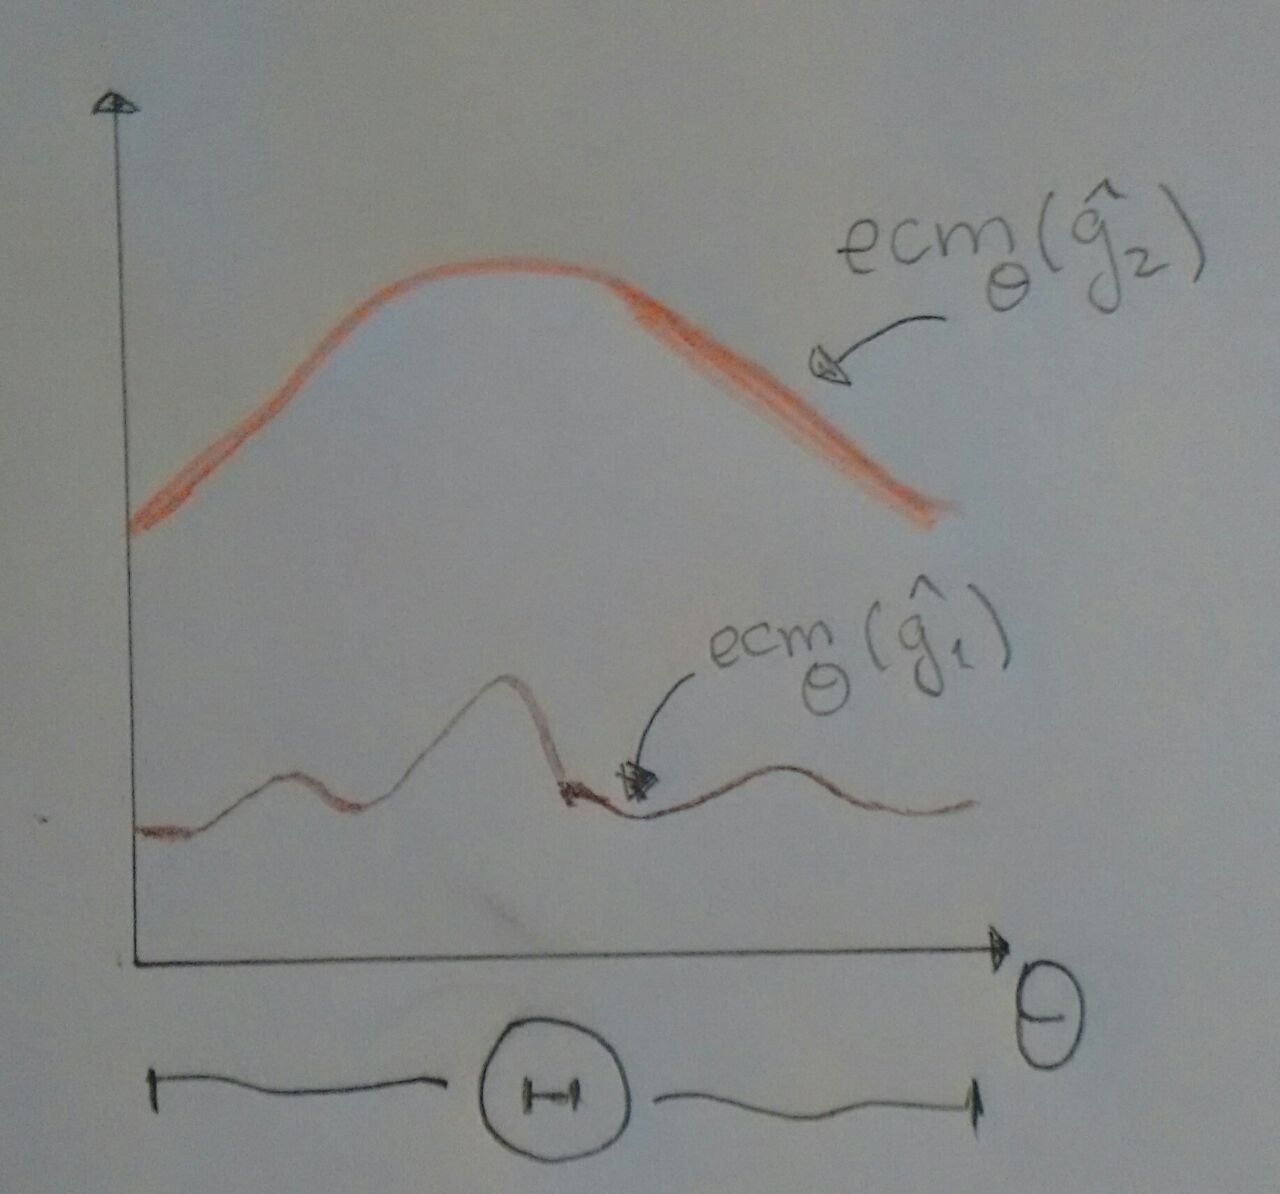 ecm_θ(ĝ₂)
ecm_θ(ĝ₁)
θ
Θ